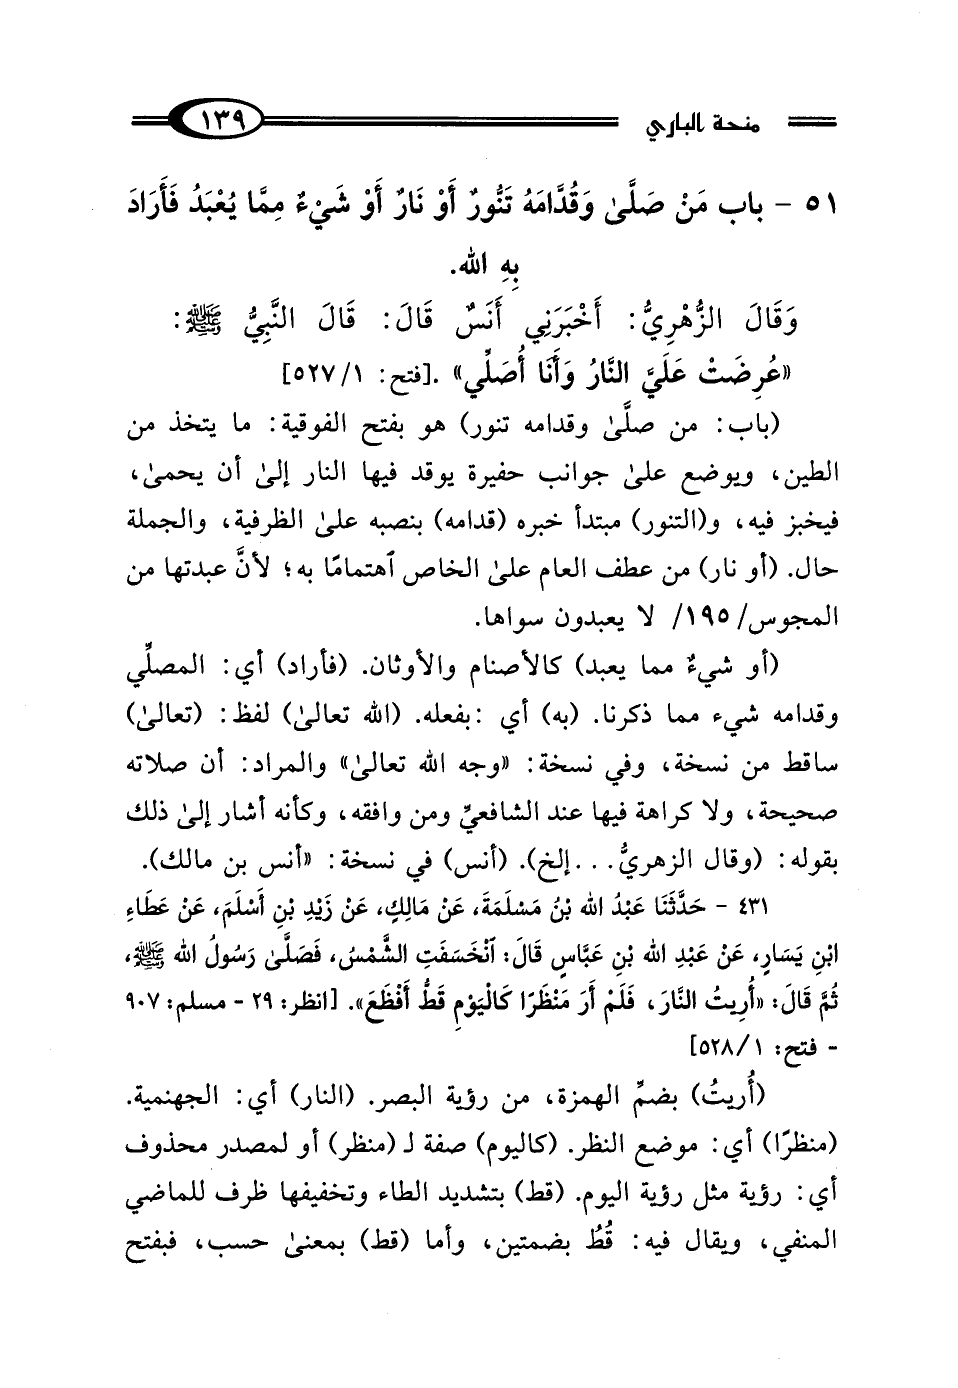 منحة الباري ١٣٩
٥١ - باب مَنْ صَلَّىٰ وَقُدَّامَهُ تَنُّورٌ أَوْ نَارٌ أَوْ شَيْءٌ مِمَّا يُعْبَدُ فَأَرَادَ
بِهِ الله.
وَقَالَ الزُّهْرِيُّ: أَخْبَرَنِي أَنَسٌ قَالَ: قَالَ النَّبِيُّ ﷺ:
«عُرِضَتْ عَلَيَّ النَّارُ وَأَنَا أُصَلِّي» .[فتح: ١/ ٥٢٧]
(باب: من صلَّىٰ وقدامه تنور) هو بفتح الفوقية: ما يتخذ من
الطين، ويوضع علىٰ جوانب حفيرة يوقد فيها النار إلىٰ أن يحمىٰ،
فيخبز فيه، و(التنور) مبتدأ خبره (قدامه) بنصبه علىٰ الظرفية، والجملة
حال. (أو نار) من عطف العام علىٰ الخاص ٱهتمامًا به؛ لأنَّ عبدتها من
المجوس/ ١٩٥/ لا يعبدون سواها.
(أو شيءٌ مما يعبد) كالأصنام والأوثان. (فأراد) أي: المصلِّي
وقدامه شيء مما ذكرنا. (به) أي :بفعله. (الله تعالىٰ) لفظ: (تعالىٰ)
ساقط من نسخة، وفي نسخة: «وجه الله تعالىٰ» والمراد: أن صلاته
صحيحة، ولا كراهة فيها عند الشافعيِّ ومن وافقه، وكأنه أشار إلىٰ ذلك
بقوله: (وقال الزهريُّ. . .إلخ). (أنس) في نسخة: «أنس بن مالك).
٤٣١ - حَدَّثَنَا عَبْدُ الله بْنُ مَسْلَمَةَ، عَنْ مَالِكٍ، عَنْ زَيْدِ بْنِ أَسْلَمَ، عَنْ عَطَاءِ
ابْنِ يَسَارٍ، عَنْ عَبْدِ الله بْنِ عَبَّاسٍ قَالَ: ٱنْخَسَفَتِ الشَّمْسُ، فَصَلَّىٰ رَسُولُ الله ﷺ،
ثُمَّ قَالَ: «أُرِيتُ النَّارَ، فَلَمْ أَرَ مَنْظَرًا كَالْيَوْمِ قَطُّ أَفْظَعَ». [انظر: ٢٩ - مسلم: ٩٠٧
- فتح: ١/ ٥٢٨]
(أُريتُ) بضمِّ الهمزة، من رؤية البصر. (النار) أي: الجهنمية.
(منظرًا) أي: موضع النظر. (كاليوم) صفة لـ (منظر) أو لمصدر محذوف
أي: رؤية مثل رؤية اليوم. (قط) بتشديد الطاء وتخفيفها ظرف للماضي
المنفي، ويقال فيه: قُطُ بضمتين، وأما (قط) بمعنىٰ حسب، فبفتح